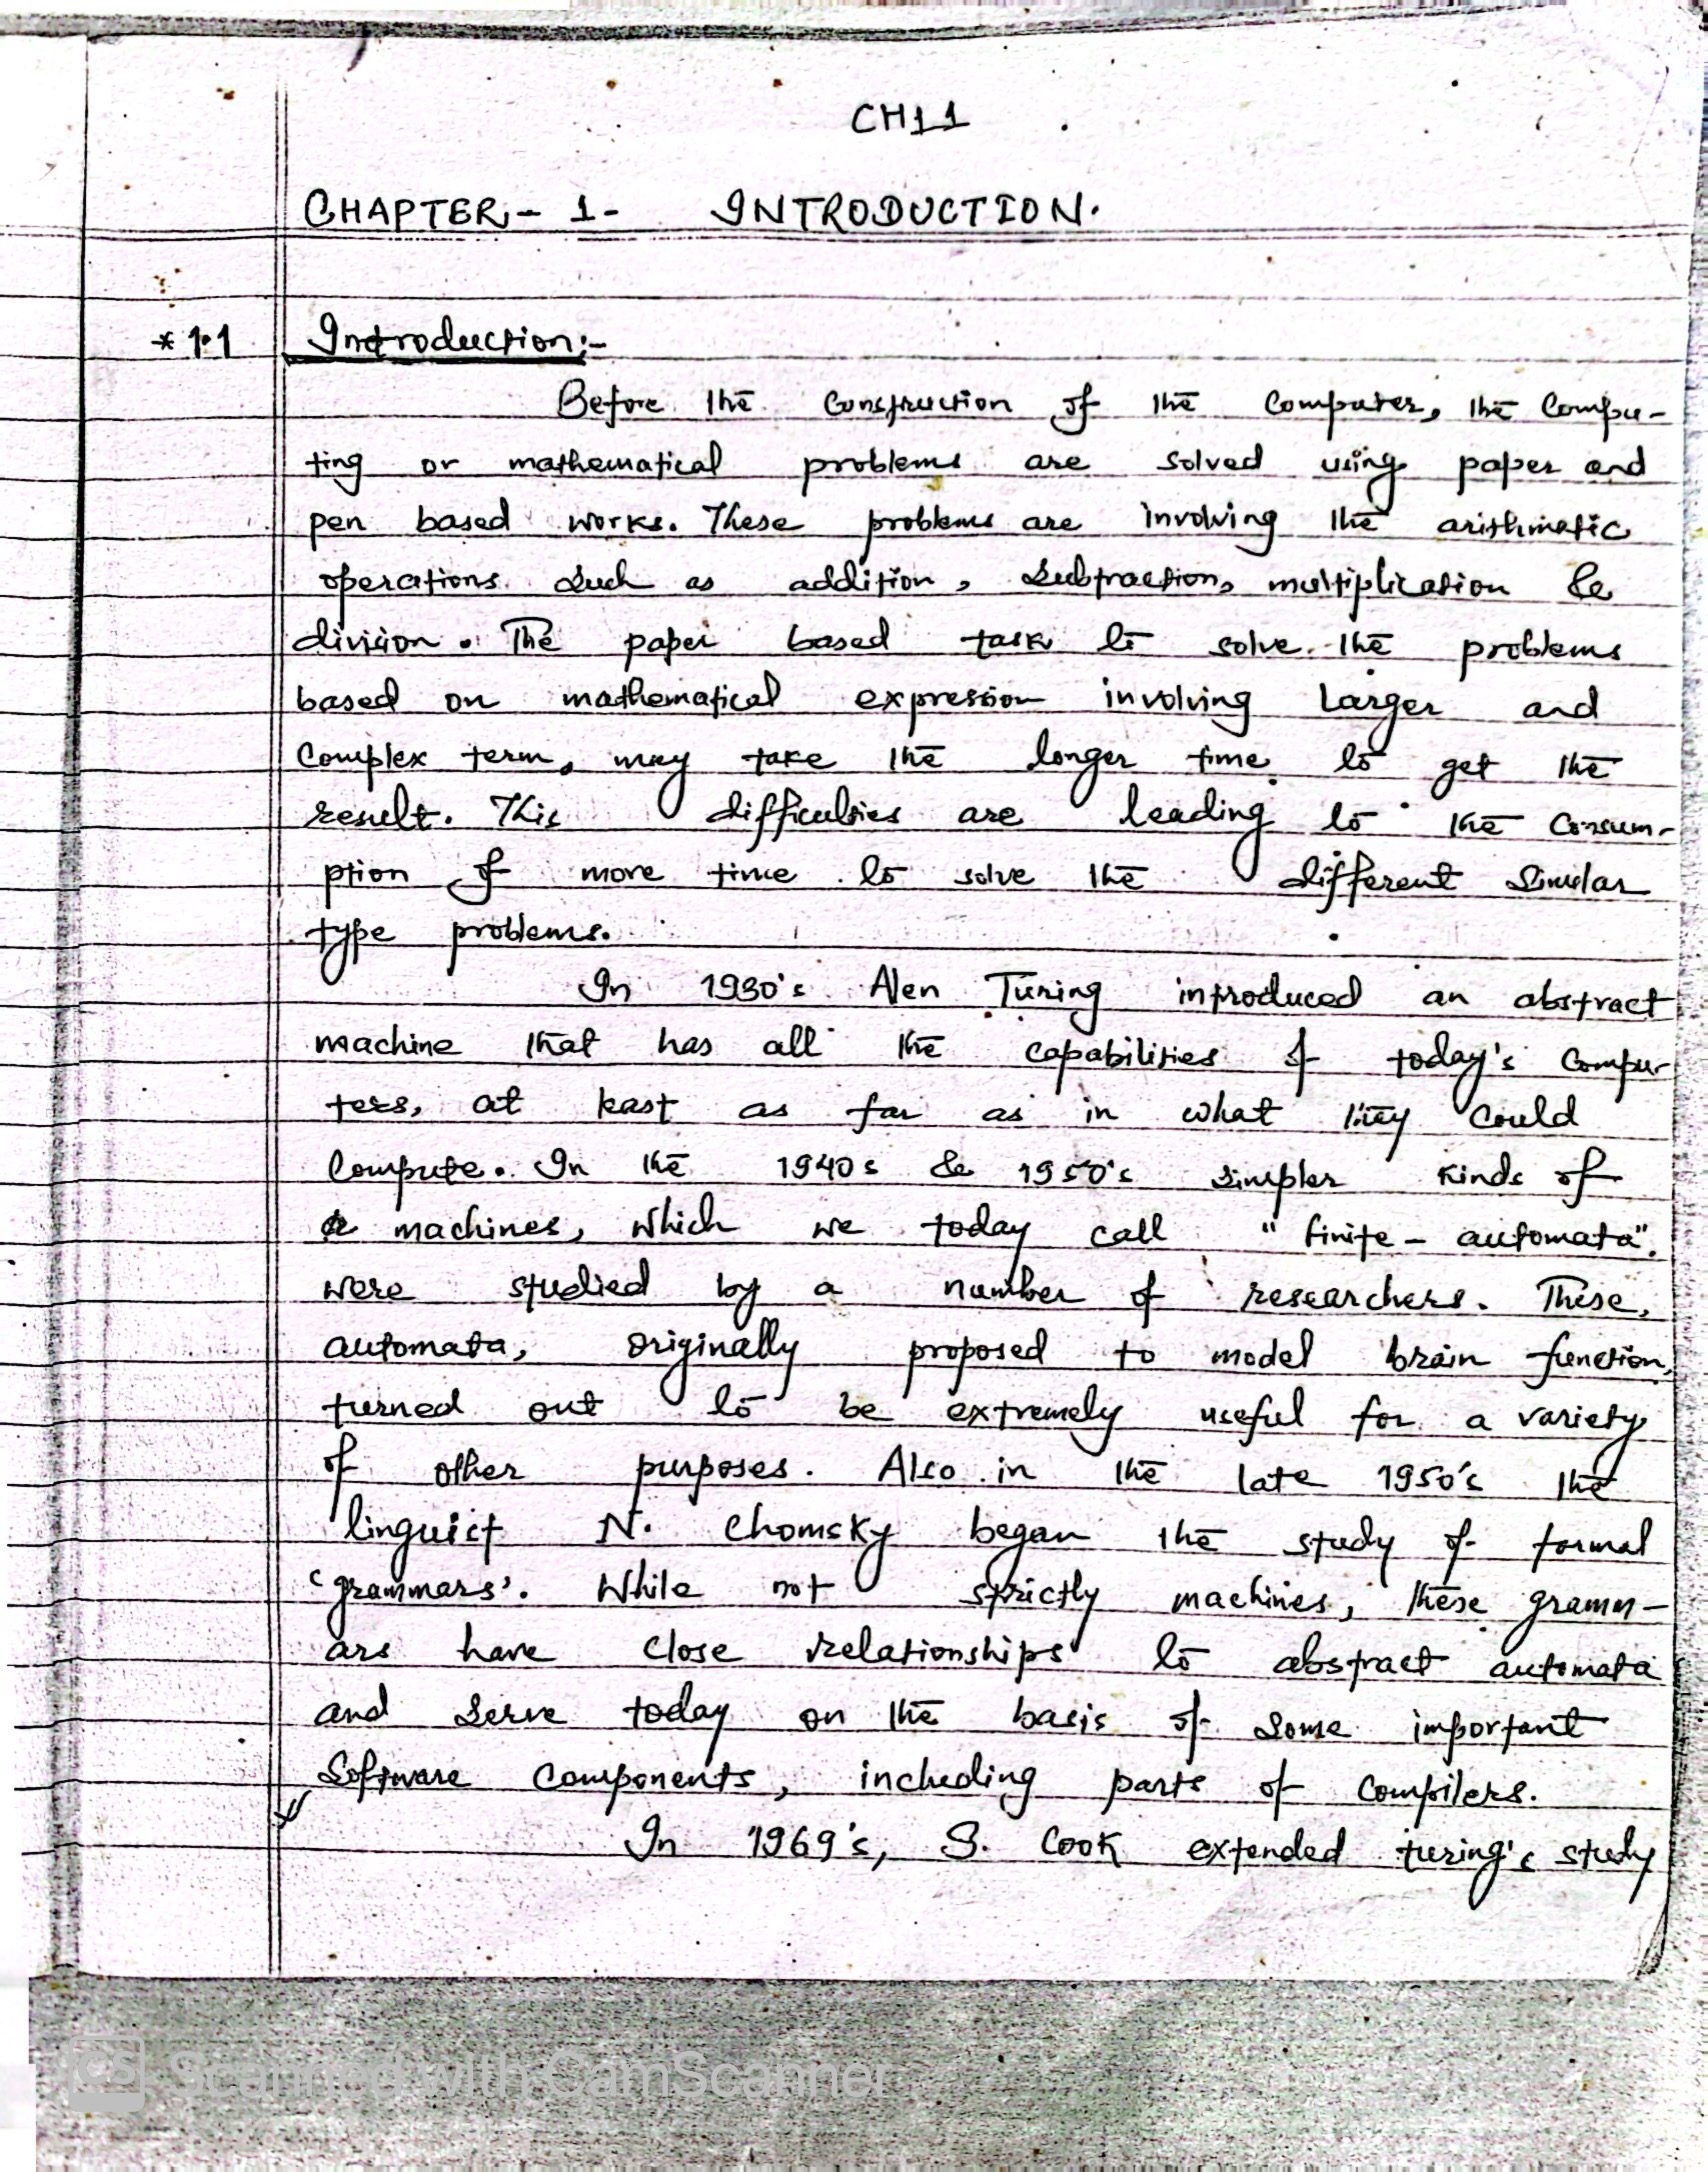 CH11
CHAPTER - 1 - INTRODUCTION.
* 1.1 Introduction:-
Before the construction of the computer, the compu-
ting or mathematical problems are solved using paper and
pen based works. These problems are involving the arithmatic
operations such as addition, subtraction, multiplication &
division. The paper based task to solve the problems
based on mathematical expression involving larger and
complex term, may take the longer time to get the
result. This difficulties are leading to the consum-
ption of more time to solve the different similar
type problems.
In 1930's Alen Turing introduced an abstract
machine that has all the capabilities of today's compu-
ters, at least as far as in what they could
compute. In the 1940s & 1950's simpler kinds of
machines, which we today call "finite - automata".
were studied by a number of researchers. These,
automata, originally proposed to model brain function,
turned out to be extremely useful for a variety
of other purposes. Also in the late 1950's the
linguist N. Chomsky began the study of formal
'grammars'. While not strictly machines, these gramm-
ars have close relationships to abstract automata
and serve today on the basis of some important
software components, including parts of compilers.
In 1969's, S. Cook extended turing's study
CS Scanned with CamScanner